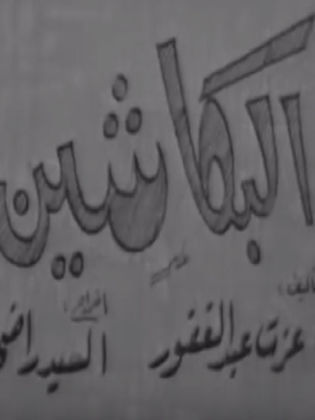 البكاشين
تأليف : اخراج :
عزت عبد الغفور السيد راضى